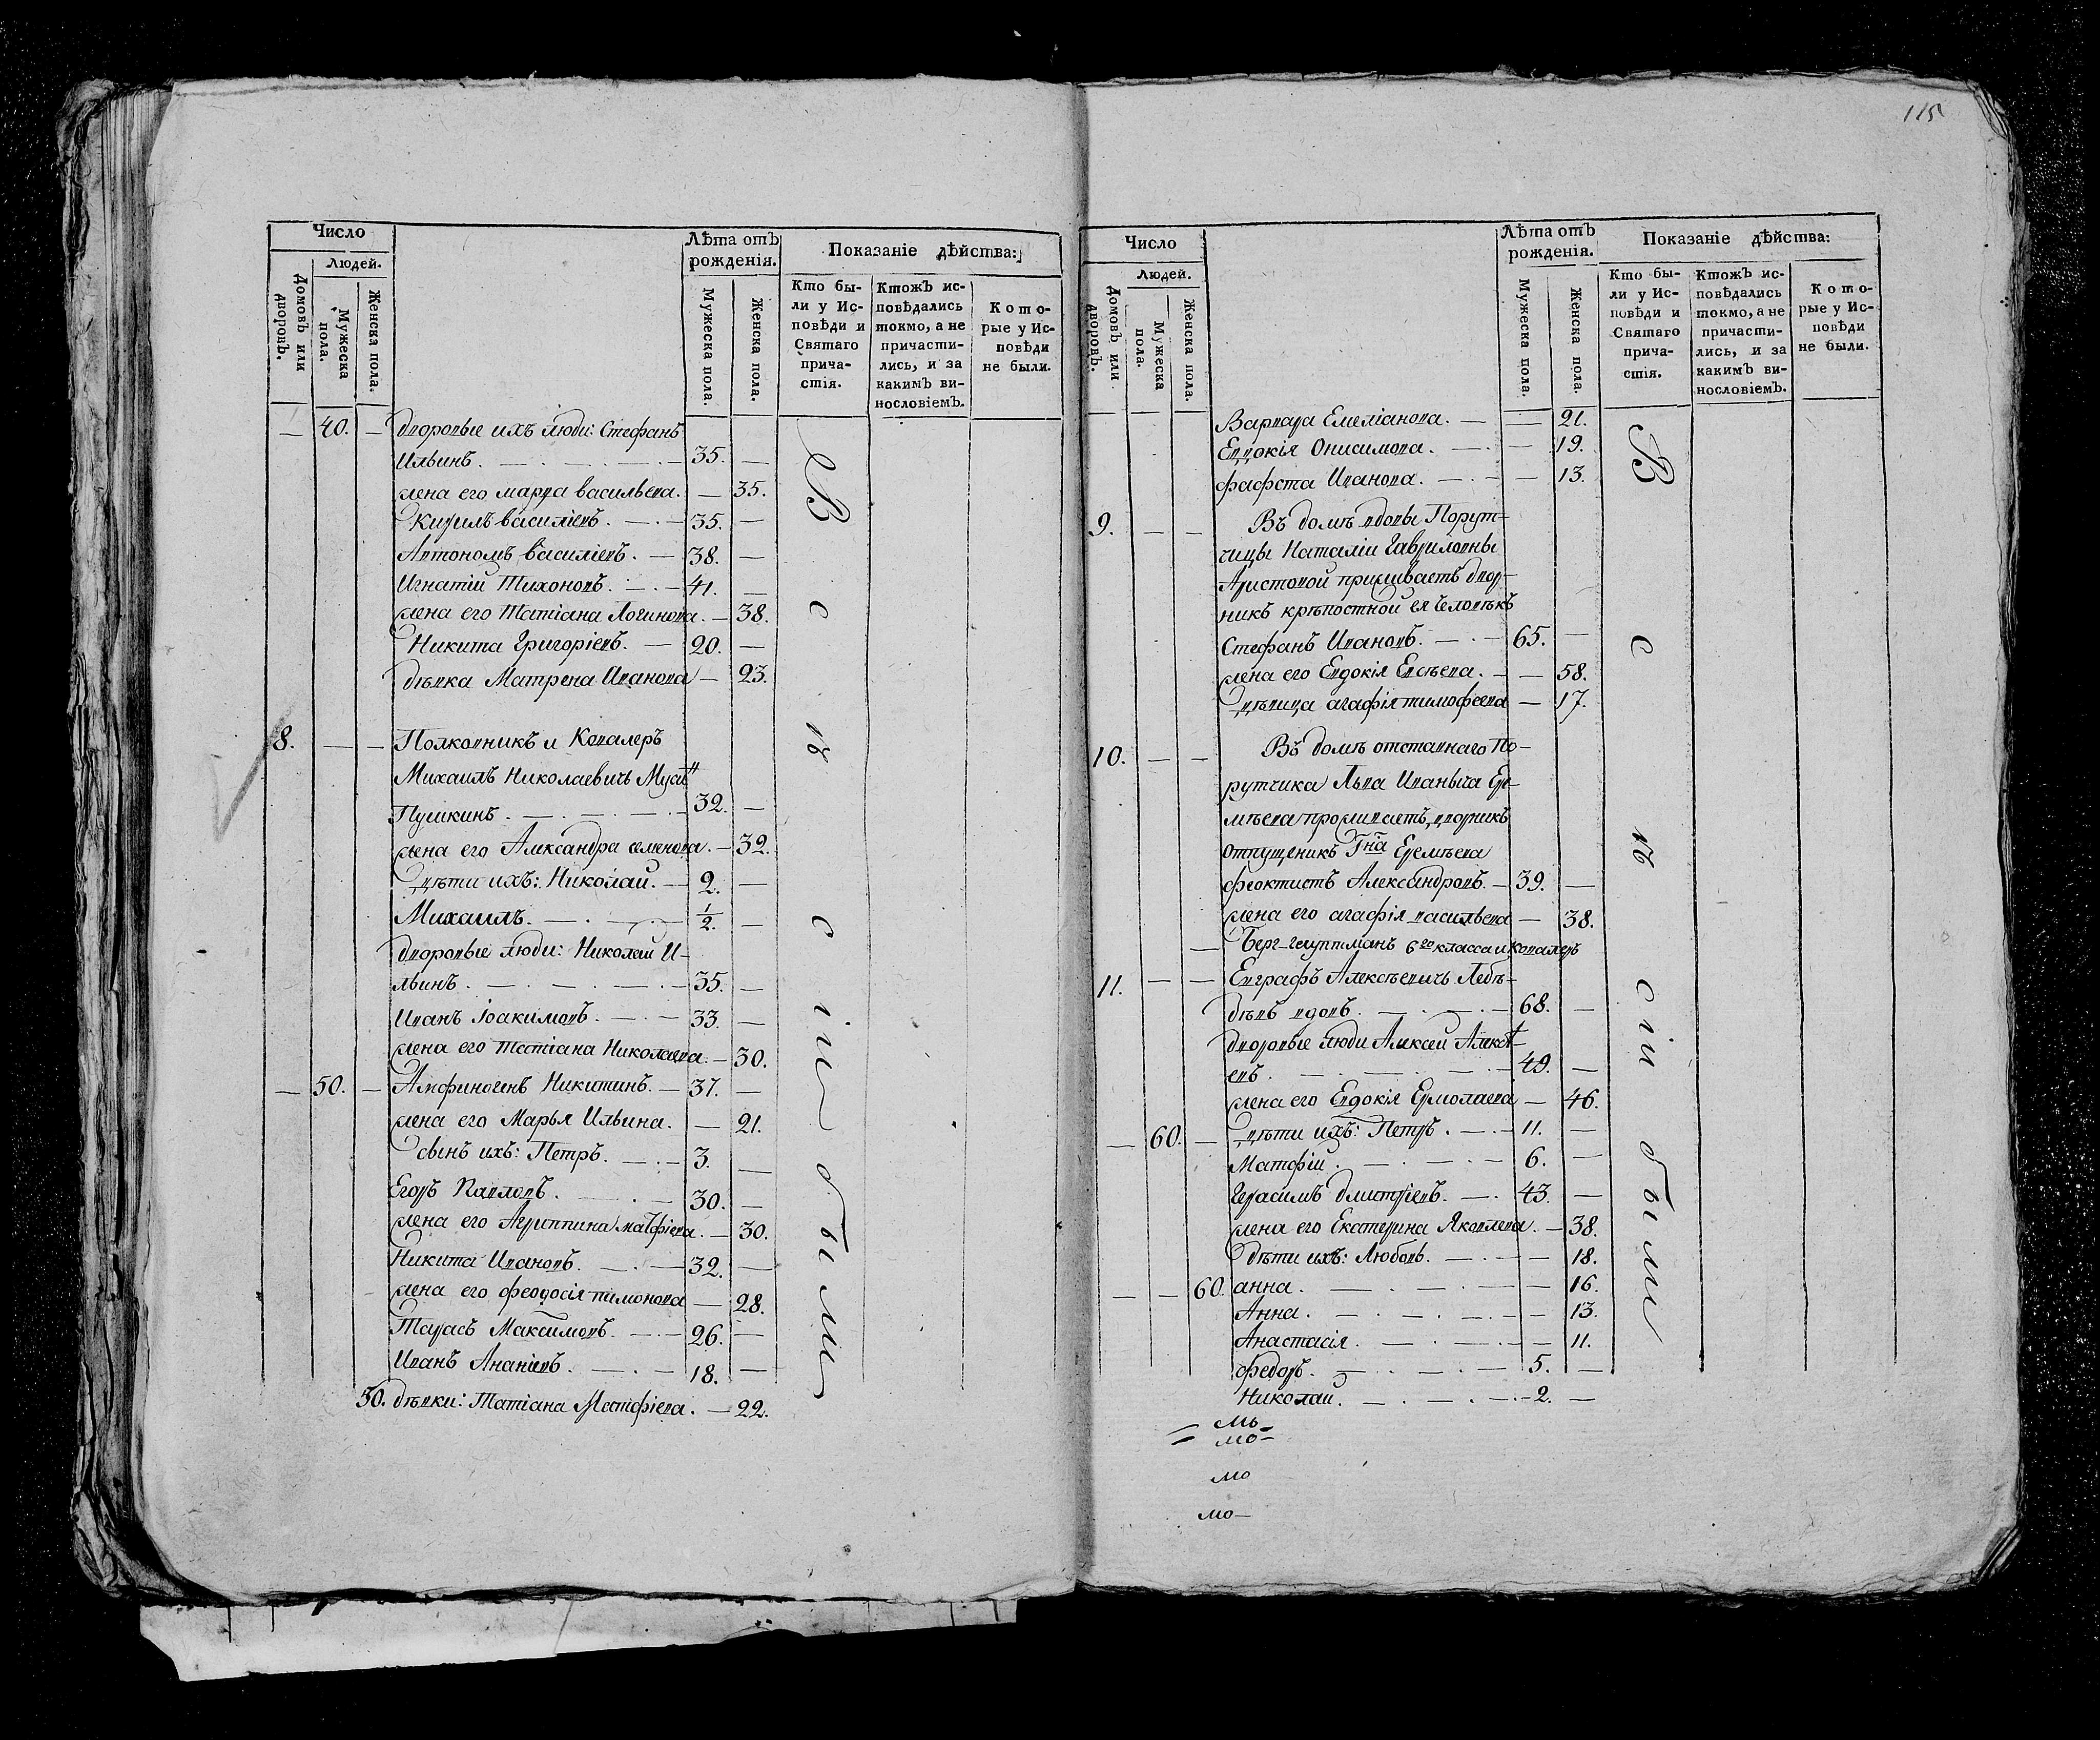 115
Число
Людей.
Домовъ или дворовъ.
Мужеска пола.
Женска пола.
Лѣта отъ рожденія.
Мужеска пола.
Женска пола.
Показаніе дѣйства:
Кто были у Исповѣди и Святаго причастія.
Ктожъ исповѣдались токмо, а не причастились, и за какимъ винословіемъ.
Которые у Исповѣди не были.
— 40. — дворовые ихъ люди: Стефанъ
Ильинъ. — 35. —
жена его марѳа васильева. — 35.
Кирилъ василіевъ. — 35. —
Автономъ василіевъ. — 38. —
Игнатій Тихоновъ. — 41. —
жена его Татіана Логинова. — 38.
Никита Григоріевъ. — 20. —
дѣвка Матрена Иванова — 23.
8. — — Полковникъ и Кавалеръ
Михаилъ Николаевичь Мусинъ
Пушкинъ. — 32. —
жена его Александра семенова. — 32.
дѣти ихъ: Николай. — 2. —
Михаилъ. — 1/2. —
дворовые люди: Николай И-
льинъ. — 35. —
Иванъ Іоакимовъ. — 33. —
жена его Татіана Николаева. — 30.
— 50. — Амфиногенъ Никитинъ. — 37. —
жена его Марья Ильина. — 21.
сынъ ихъ: Петръ. — 3. —
Егоръ Павловъ. — 30. —
жена его Агриппина матфіева. — 30.
Никита Ивановъ. — 32. —
жена его феодосія тимонова — 28.
Тарасъ Максимовъ. — 26. —
Иванъ Ананіевъ. — 18. —
50. дѣвки: Татіана Матфіева. — 22.
Всѣ сіи были
Число
Людей.
Домовъ или дворовъ.
Мужеска пола.
Женска пола.
Лѣта отъ рожденія.
Мужеска пола.
Женска пола.
Показаніе дѣйства:
Кто были у Исповѣди и Святаго причастія.
Ктожъ исповѣдались токмо, а не причастились, и за какимъ винословіемъ.
Которые у Исповѣди не были.
Варвара Емеліанова. — — 21.
Евдокія Онисимова. — — 19.
Иванова. — — 13.
9. — — Въ домѣ вдовы Порут-
чицы Наталіи Гавриловны
Аристовой проживаетъ двор-
никъ крѣпостной ея человѣкъ
Стефанъ Ивановъ. — 65. —
жена его Евдокія Евсѣева. — — 58.
дѣвица агафія тимофеева — 17.
10. — — Въ домѣ отставнаго По-
рутчика Льва Иваныча Ер-
мѣева проживаетъ дворникъ
отпущеникъ Гна Еремѣева
феоктистъ Александровъ. — 39. —
жена его агафія васильева — 38.
— Берг-гауптманъ 6го класса и кавалеръ
11. — — Евграфъ Алексѣевичь Лебѣ-
дѣвъ вдовъ. — 68. —
дворовые люди Алексей Алексѣ-
евъ. — 49. —
жена его Евдокія Ермолаева — 46.
— 60. — дѣти ихъ: Петръ. — 11. —
Матфій. — 6. —
Герасимъ дмитріевъ. — 43. —
жена его Екатерина Яковлева. — 38.
дѣти ихъ: Любовь. — — 18.
— — 60. анна. — — 16.
Анна. — — 13.
Анастасія. — — 11.
федоръ. — 5. —
Николай. — 2. —
Всѣ сіи были
мь
мо—
мо
мо—